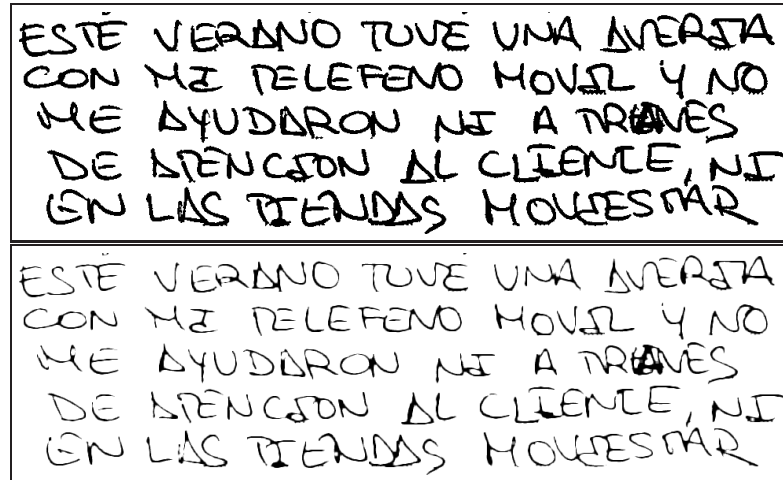 ESTE VERANO TUVE UNA AVERIA
CON MI TELEFENO MOVIL Y NO
ME AYUDARON NI A TRAVES
DE ATENCION AL CLIENTE, NI
EN LAS TIENDAS MOVIESTAR
ESTE VERANO TUVE UNA AVERIA
CON MI TELEFENO MOVIL Y NO
ME AYUDARON NI A TRAVES
DE ATENCION AL CLIENTE, NI
EN LAS TIENDAS MOVIESTAR